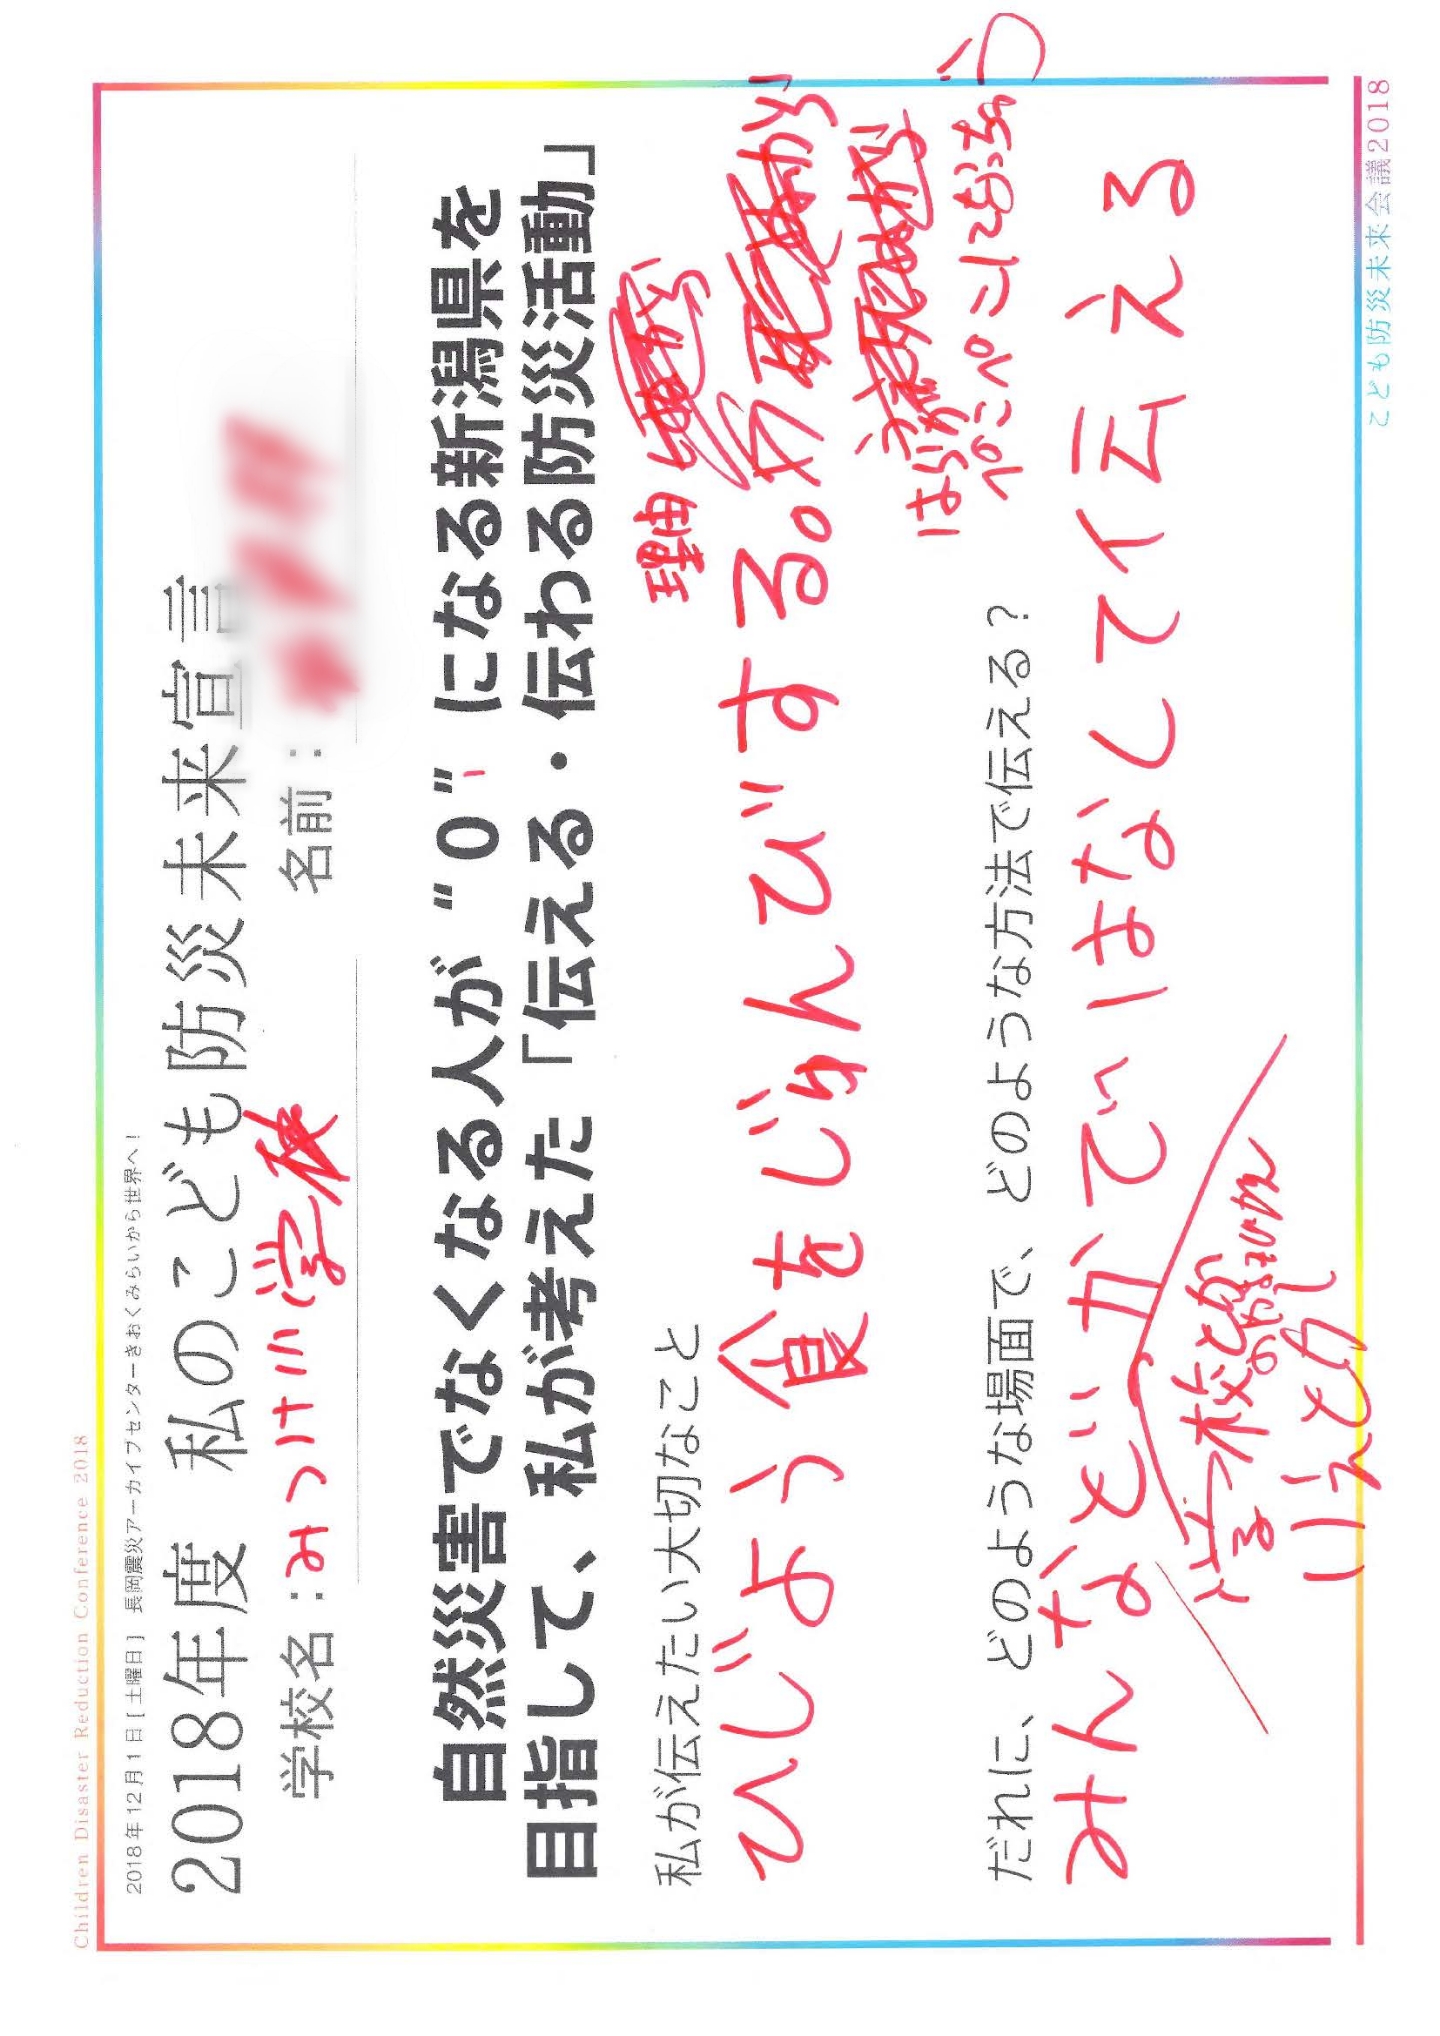 Children Disaster Reduction Conference 2018
2018年12月1日[土曜日] 長岡震災アーカイブセンターきおくみらいから世界へ!
2018年度 私のこども防災未来宣言
学校名:みつけ小学校 名前:
自然災害でなくなる人が“0”になる新潟県を
目指して、私が考えた「伝える・伝わる防災活動」
私が伝えたい大切なこと
理由
ひじょう食をじゅんびする。
はらが
ぺこぺこになっちゃう
だれに、どのような場面で、どのような方法で伝える?
みんなどかでいはなして伝える
学校と
いえとか
こども防災未来会議2018